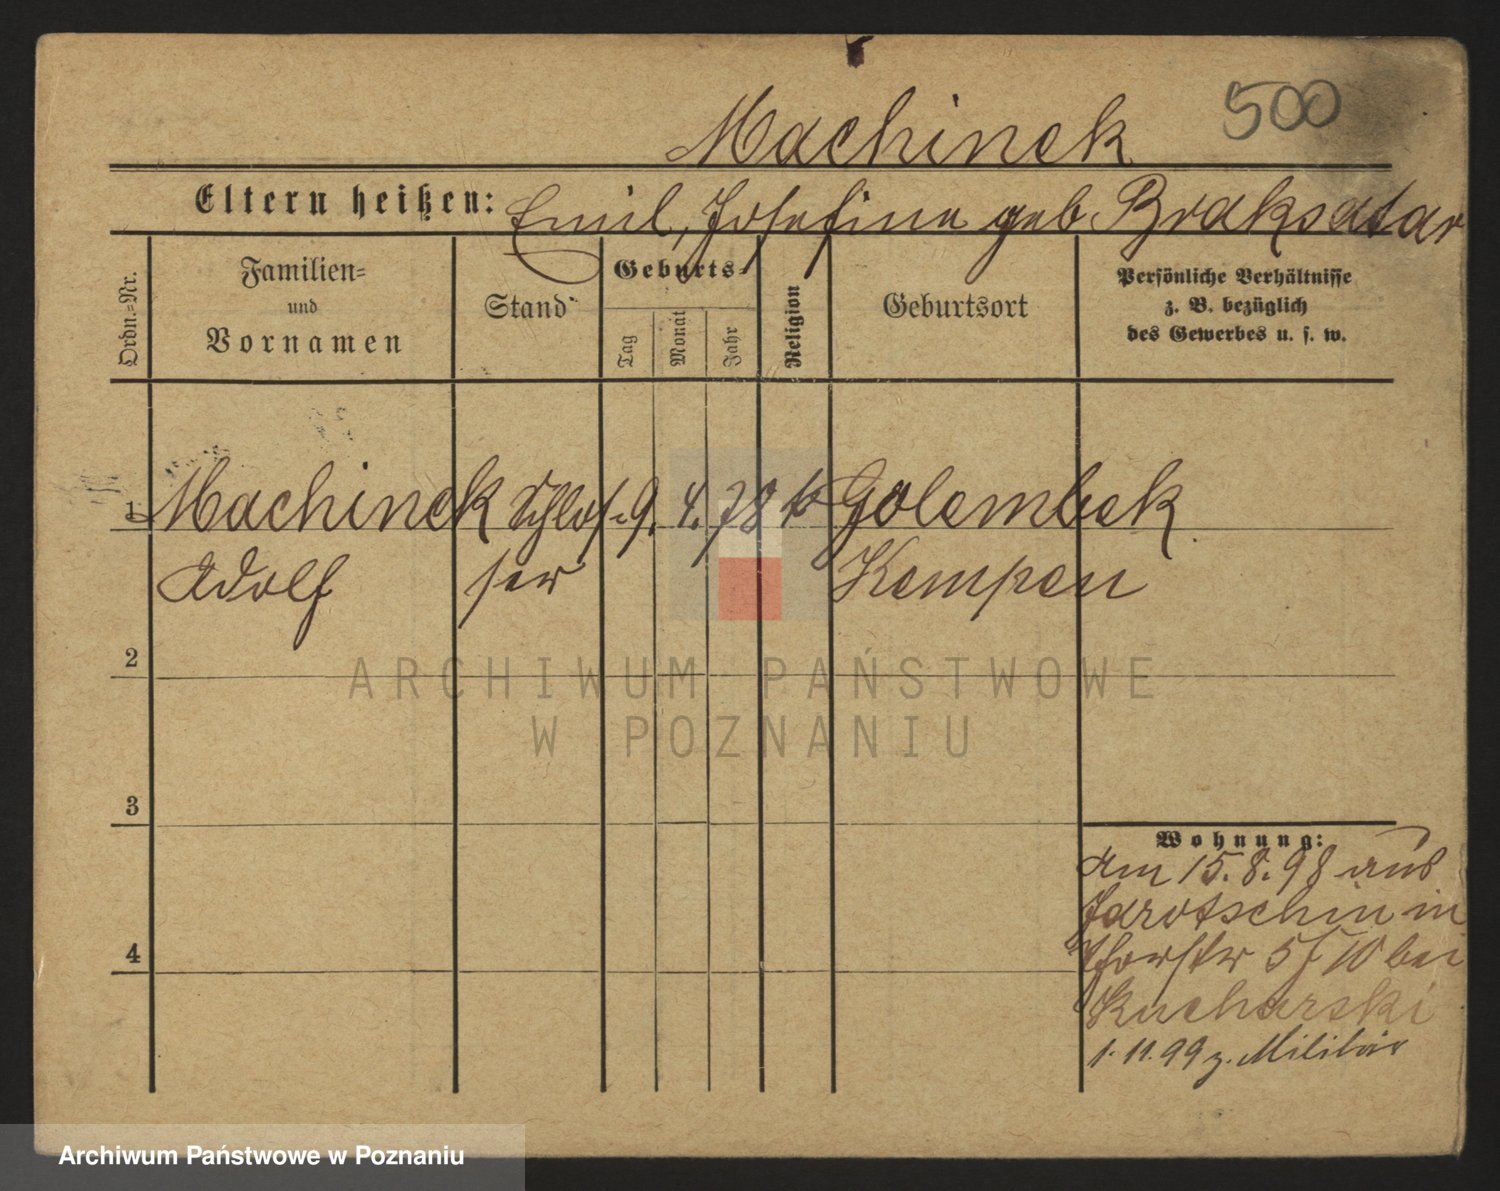 500
Machinek
Eltern heißen: Emil, Josefina geb. Braksator
Ordn.=Nr.
Familien=
und
Vornamen
Stand
Geburts=
Tag
Monat
Jahr
Religion
Geburtsort
Persönliche Verhältnisse
z. B. bezüglich
des Gewerbes u. s. w.
1 Machinek Schlos- 9. 4. 78 k Golembek
Adolf ser Kempen
2
3
4
Wohnung:
Am 15.8.98 aus
Jarotschin in
10 bei
Kucharski
1.11.99 z. Militär
ARCHIWUM PAŃSTWOWE
W POZNANIU
Archiwum Państwowe w Poznaniu